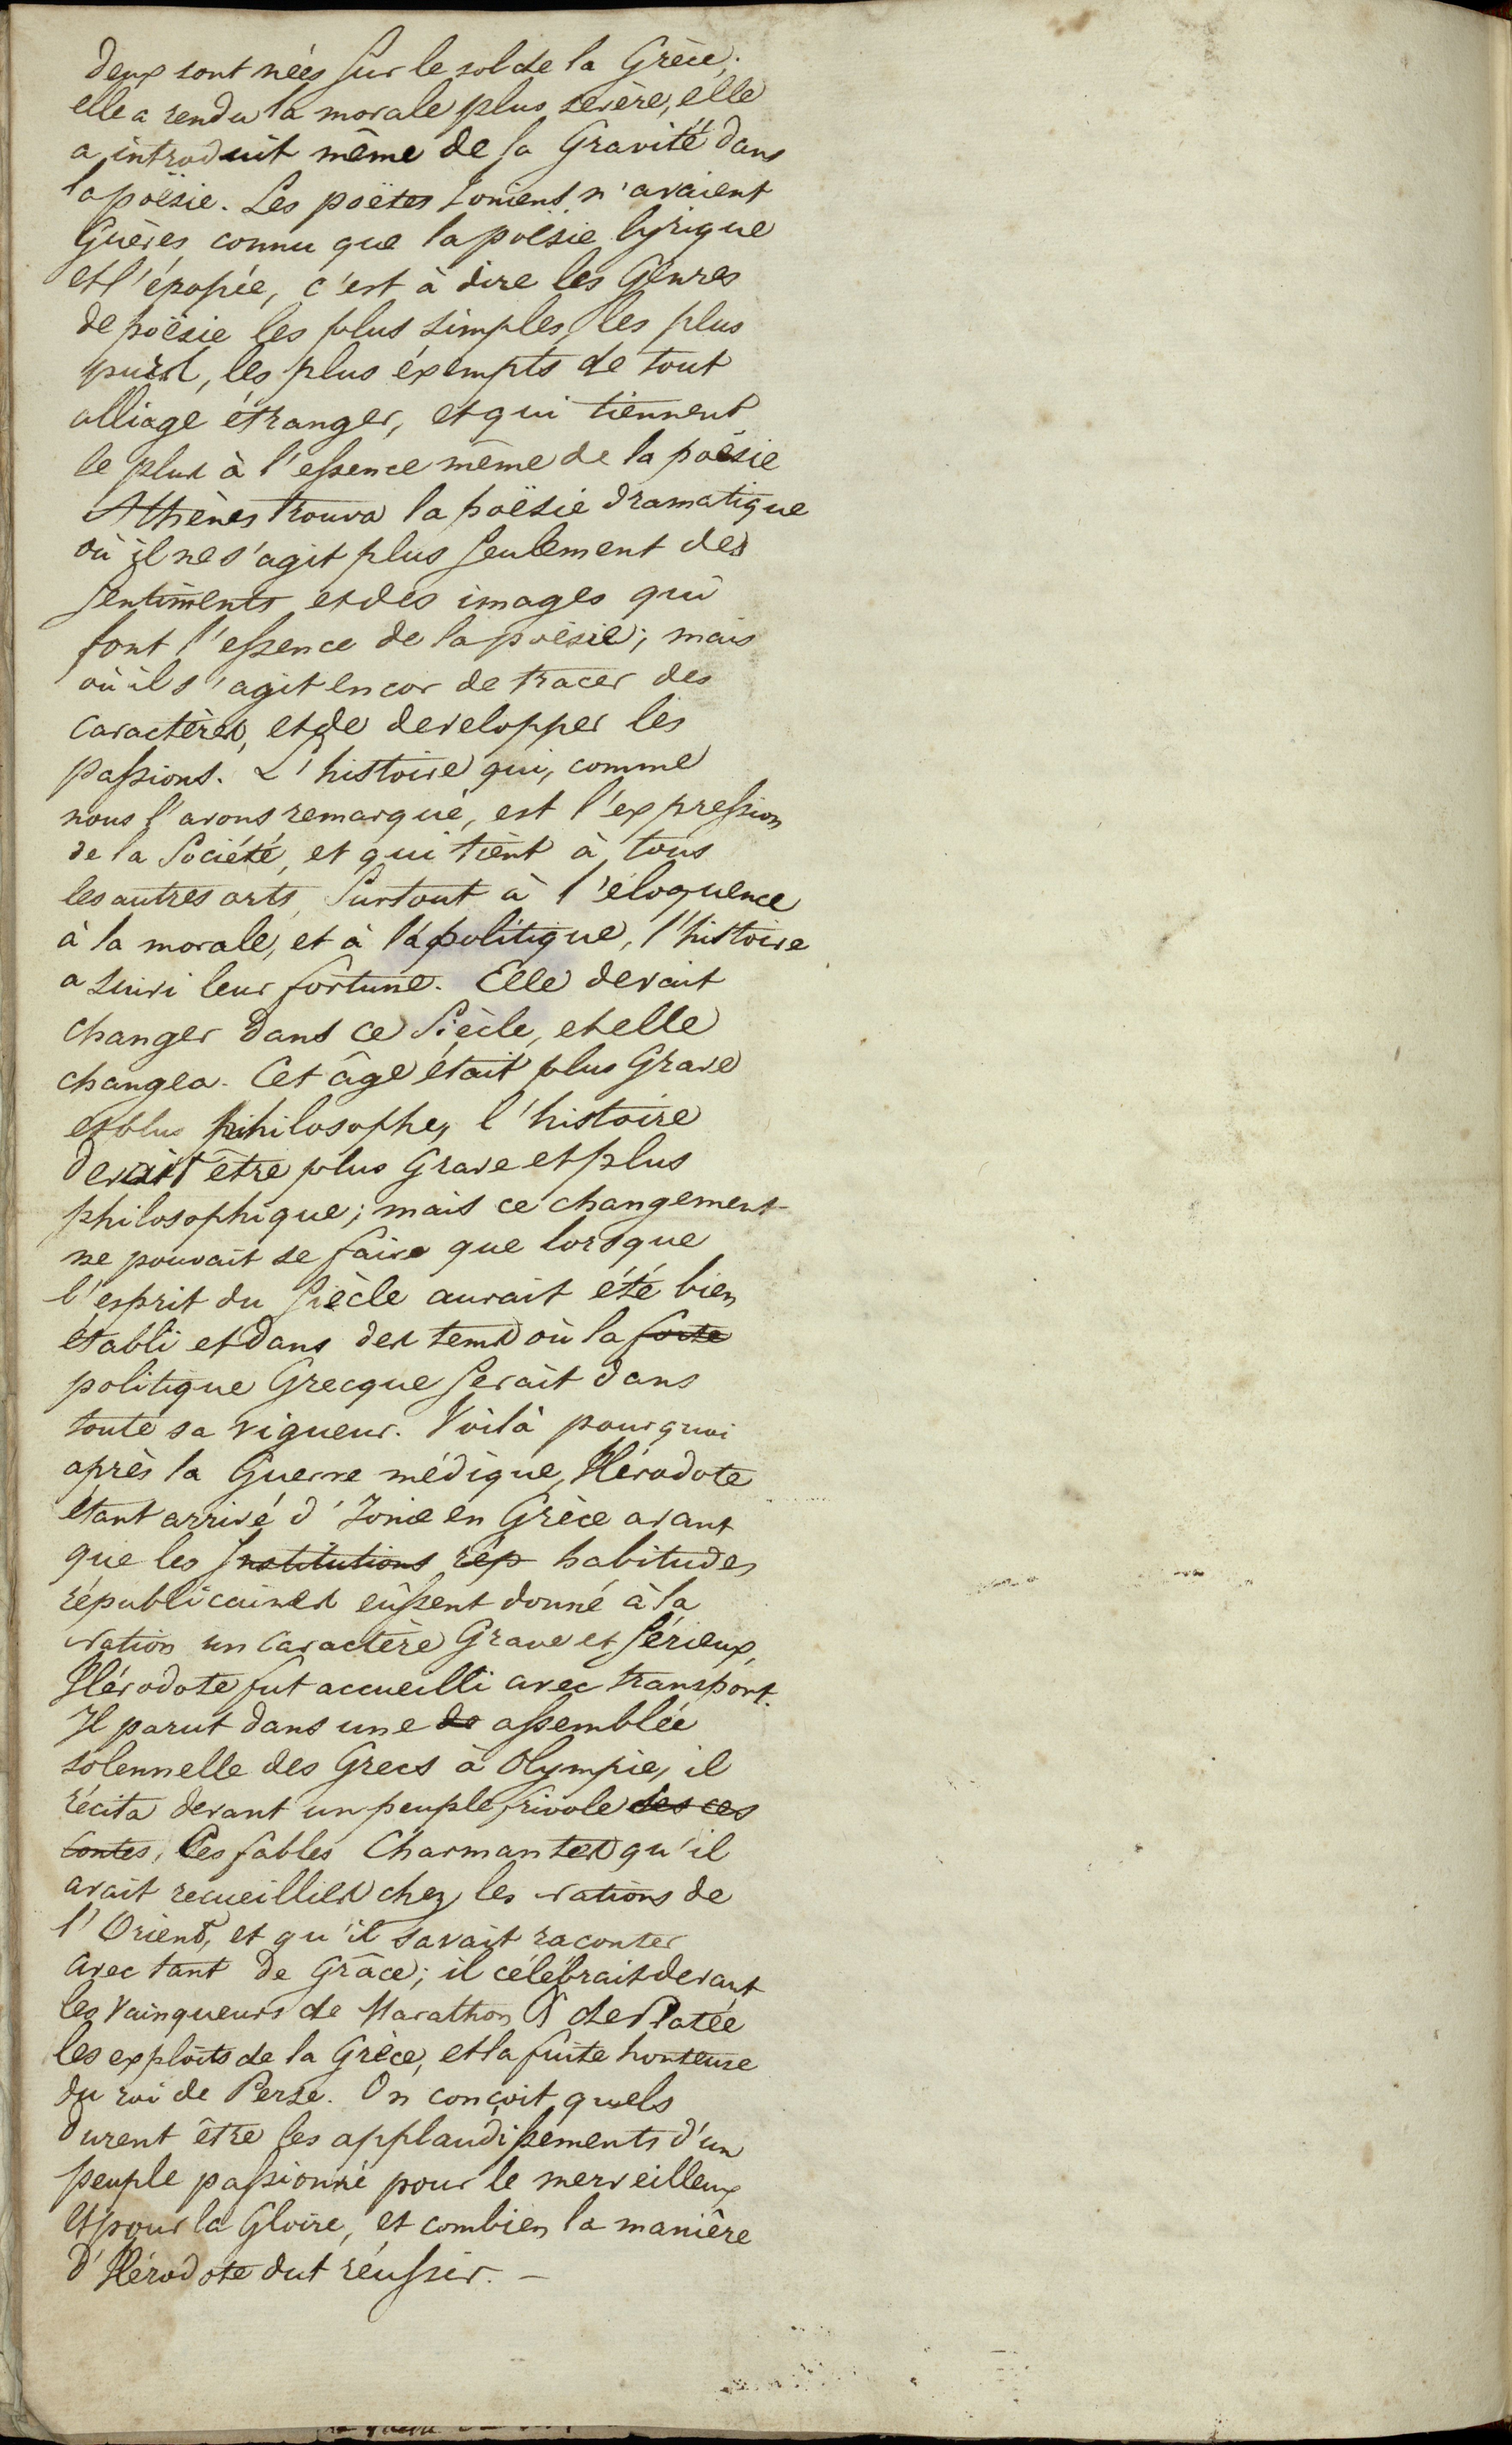 deux sont nées sur le sol de la Grèce;
elle a rendu la morale plus sevère, elle
a introduit même de la Gravité dans
la poësie. Les poëtes Ioniens n'avaient
Guères connu que la poësie lyrique
et l'épopée, c'est à dire les Genres
de poësie les plus simples, les plus
purs, les plus éxempts de tout
alliage étranger, et qui tiennent
le plus à l'essence même de la poësie
Athènes trouva la poësie dramatique
où il ne s'agit plus seulement des
sentiments et des images qui
font l'essence de la poësie; mais
où il s'agit encor de tracer des
caractères, et de developper les
passions. L'histoire qui, comme
nous l'avons remarqué, est l'expression
de la Société, et qui tient à tous
les autres arts, surtout à l'éloquence
à la morale, et à la politique, l'histoire
a suivi leur fortune. Elle devait
changer dans ce siècle, et elle
changea. Cet âge était plus Grave
et plus philosophe, l'histoire
devait être plus Grave et plus
philosophique; mais ce changement
ne pouvait se faire que lorsque
l'esprit du siècle aurait été bien
établi et dans des tems où la forte
politique Grecque serait dans
toute sa vigueur. Voilà pourquoi
après la Guerre médique, Hérodote
étant arrivé d'Ionie en Grèce avant
que les Institutions rép habitudes
républicaines eussent donné à la
nation un caractère Grave et sérieux,
Hérodote fut accueilli avec transport.
Il parut dans une de assemblée
solennelle des Grecs à Olympie, il
récita devant un peuple frivole des ces
contes, les fables Charmantes qu'il
avait recueillies chez les nations de
l'Orient, et qu'il savait raconter
avec tant de Grâce; il célébrait devant
les Vainqueurs de Marathon & de Platée
les exploits de la Grèce, et la fuite honteuse
du roi de Perse. On conçoit quels
durent être les applaudissements d'un
peuple passionné pour le merveilleux
et pour la Gloire, et combien la manière
d'Hérodote dut réussir. —